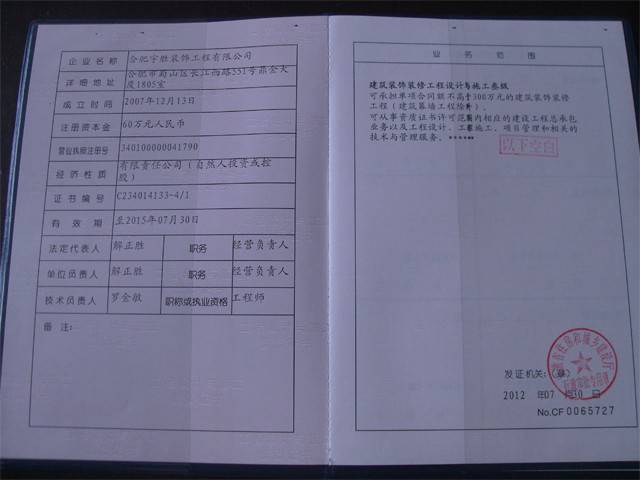 企业名称 合肥宇胜装饰工程有限公司
详细地址 合肥市蜀山区长江西路551号鼎金大
厦1805室
成立时间 2007年12月13日
注册资本金 60万元人民币
营业执照注册号 340100000041790
经济性质 有限责任公司（自然人投资或控
股）
证书编号 C234014133-4/1
有效期 至2015年07月30日
法定代表人 解正胜 职务 经营负责人
单位负责人 解正胜 职务 经营负责人
技术负责人 罗会敏 职称或执业资格 工程师
备注：
业务范围
建筑装饰装修工程设计与施工叁级
可承担单项合同额不高于300万元的建筑装饰装修
工程（建筑幕墙工程除外）。
可从事资质证书许可范围内相应的建设工程总承包
业务以及工程设计、工程施工、项目管理和相关的
技术与管理服务。******
以下空白
发证机关：（章）
2012 年07月30日
No.CF 0065727